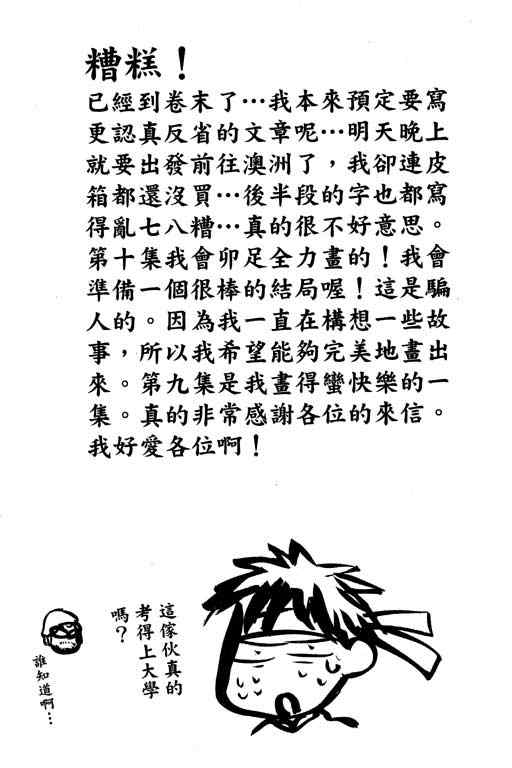 糟糕！
已經到卷末了…我本來預定要寫
更認真反省的文章呢…明天晚上
就要出發前往澳洲了，我卻連皮
箱都還沒買…後半段的字也都寫
得亂七八糟…真的很不好意思。
第十集我會卯足全力畫的！我會
準備一個很棒的結局喔！這是騙
人的。因為我一直在構想一些故
事，所以我希望能夠完美地畫出
來。第九集是我畫得蠻快樂的一
集。真的非常感謝各位的來信。
我好愛各位啊！
這傢伙真的
考得上大學
嗎？
誰知道啊…